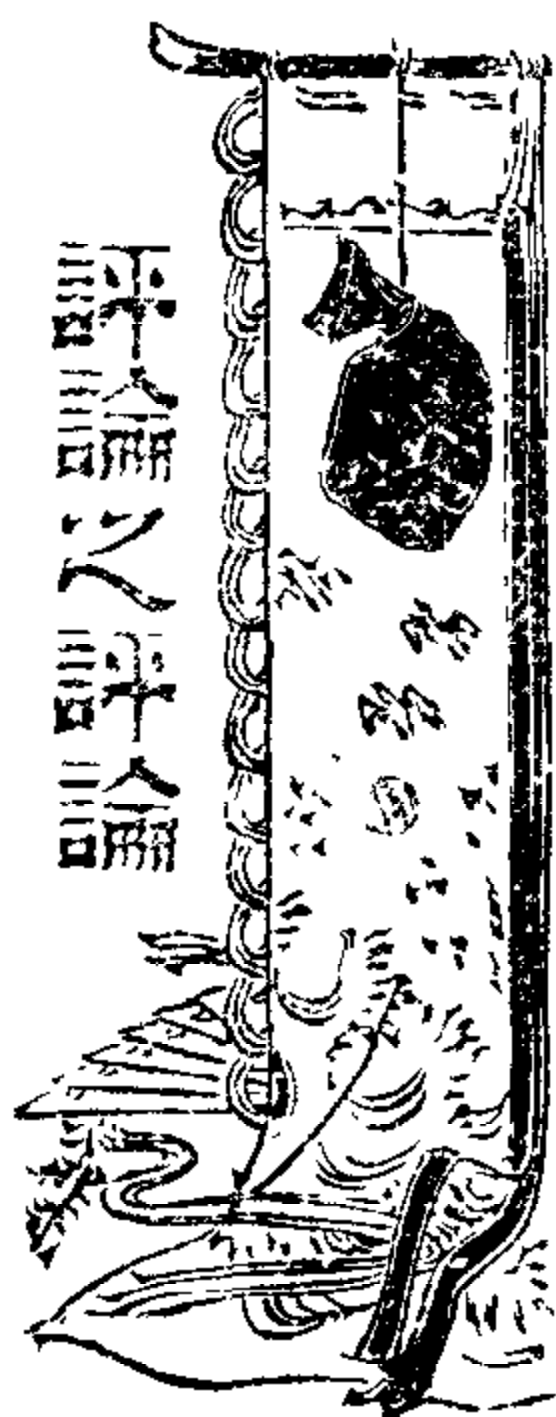 評論之評論